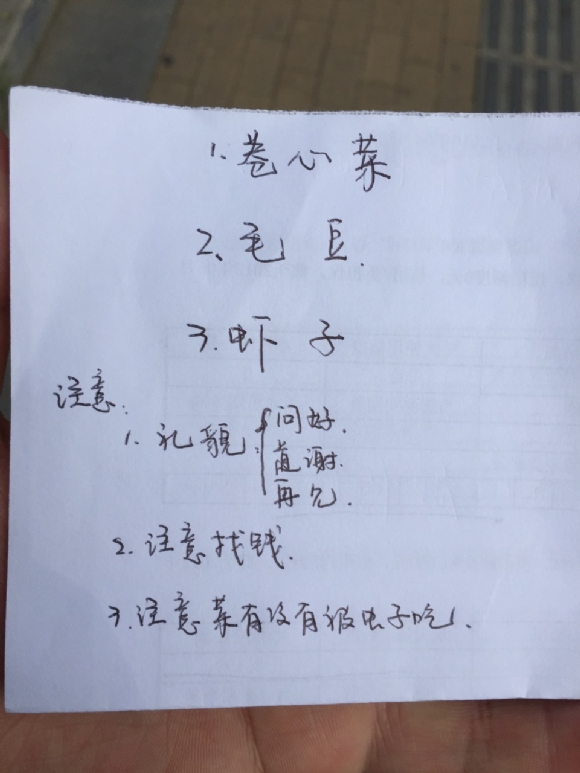 1. 卷心菜
2、毛豆.
3. 虾子
注意:
1. 礼貌: { 问好.
道谢.
再见.
2. 注意找钱.
3. 注意菜有没有被虫子吃.